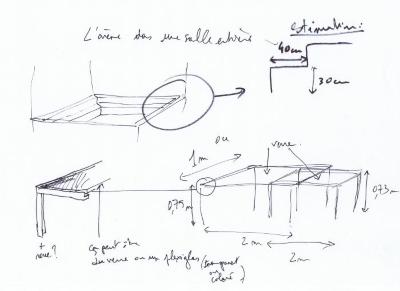 L'arène dans une salle entière
estimation:
~40cm
30cm
ou
1m
verre
0,75m
0,73m
2m
2m
+
verre?
ça peut être
du verre ou un plexiglas (transparent
ou
coloré)